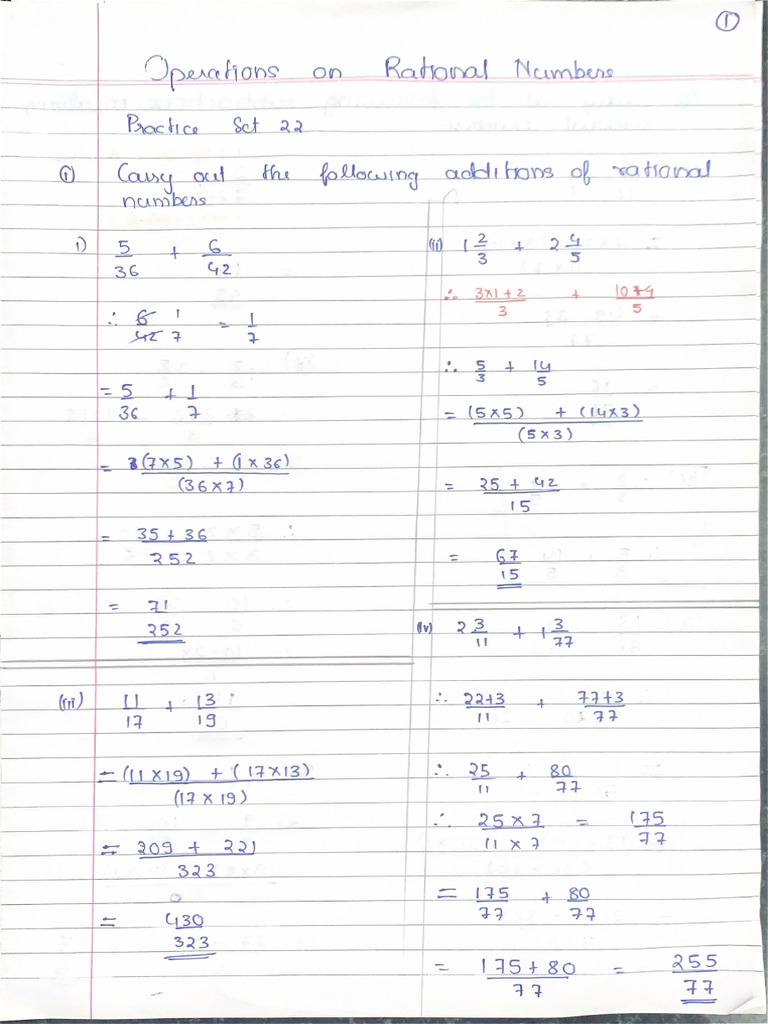 1
Operations on Rational Numbers
Practice Set 22
① Carry out the following additions of rational
numbers
i) 5/36 + 6/42
∴ 6/42 1/7 = 1/7
= 5/36 + 1/7
= (7×5) + (1×36) / (36×7)
= 35+36 / 252
= 71 / 252
(ii) 1 2/3 + 2 4/5
∴ 3×1+2 / 3 + 10+4 / 5
∴ 5/3 + 14/5
= (5×5) + (14×3) / (5×3)
= 25 + 42 / 15
= 67 / 15
(iii) 11/17 + 13/19
= (11×19) + (17×13) / (17×19)
= 209 + 221 / 323
= 430 / 323
(iv) 2 3/11 + 1 3/77
∴ 22+3 / 11 + 77+3 / 77
∴ 25/11 + 80/77
∴ 25×7 / 11×7 = 175/77
= 175/77 + 80/77
= 175+80 / 77 = 255/77